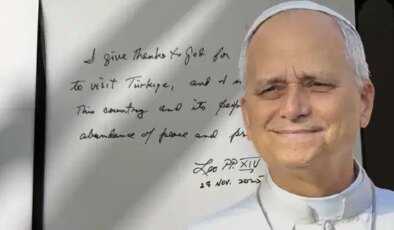 I give thanks to God for
to visit Türkiye, and I
This country and its
abundance of peace and
Leo PP. XIV
27 Nov. 2025